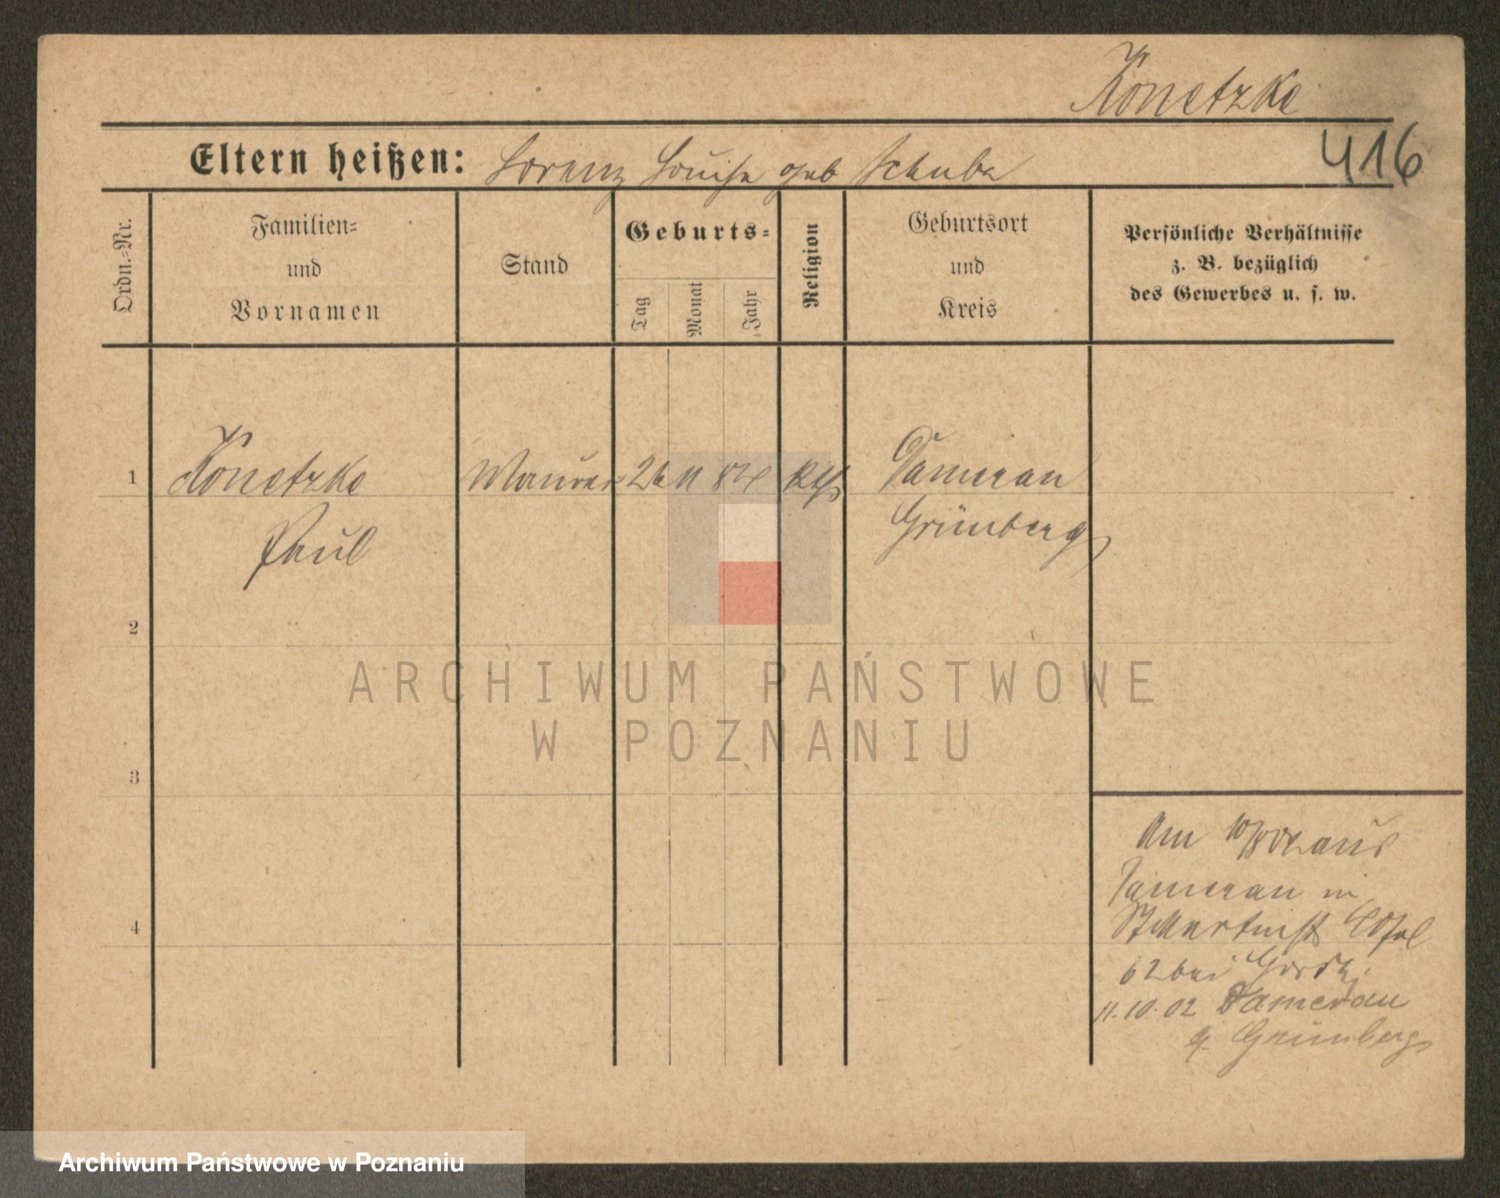 Konetzke
416
Eltern heißen: Lorenz Louise geb Schube
Ordn.-Nr.
Familien=
und
Vornamen
Stand
Geburts=
Tag
Monat
Jahr
Religion
Geburtsort
und
Kreis
Persönliche Verhältnisse
z. B. bezüglich
des Gewerbes u. s. w.
1 Konetzke Maurer 26 11 84 kth Damerau
Paul Grünberg
2
3
4
Am aus
Damerau in
62 bei
11.10.02 Damerau
Grünberg
ARCHIWUM PAŃSTWOWE
W POZNANIU
Archiwum Państwowe w Poznaniu